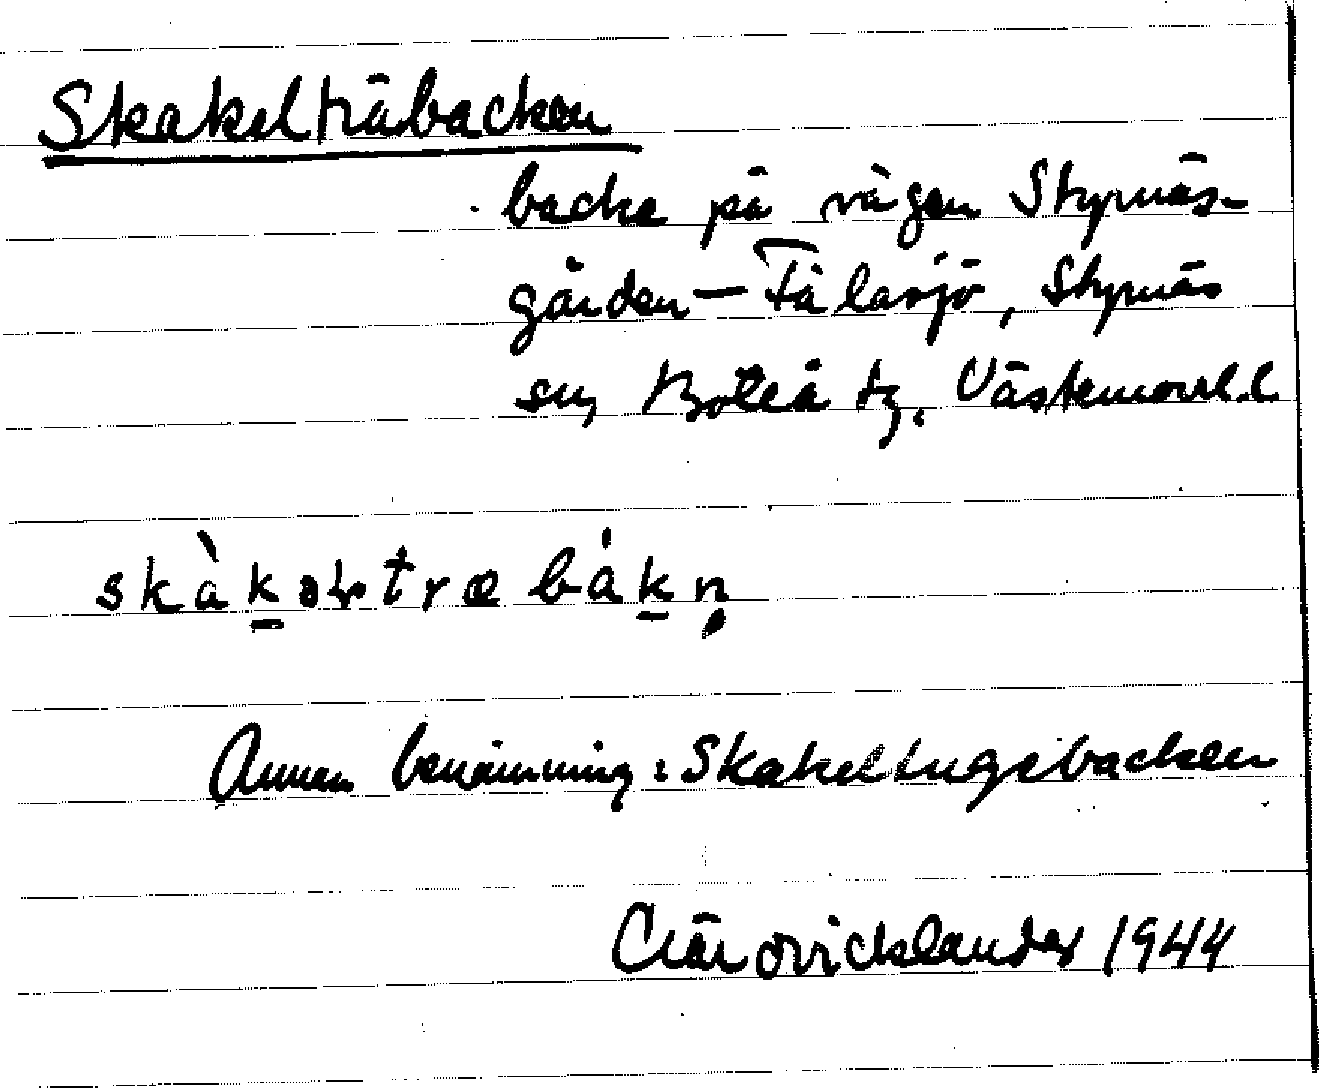 Skakelträbacken
backe på vägen Styrnäs-
gården – Tålasjö, Styrnäs
sn, Boteå tg. Västernorrl.l.
skàkəltræbákn̥
Annan benämning: Skakeltugsbacken
1944